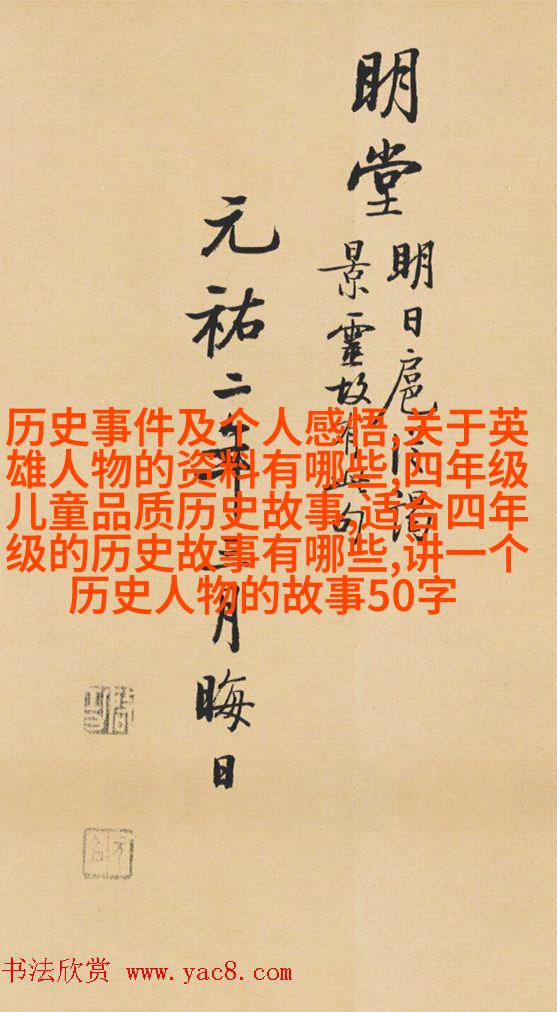 明堂
明日扈從謁
景靈故有此句
元祐二年三月晦日
历史事件及个人感悟,关于英
雄人物的资料有哪些,四年级
儿童品质历史故事,适合四年
级的历史故事有哪些,讲一个
历史人物的故事50字
书法欣赏 www.yac8.com